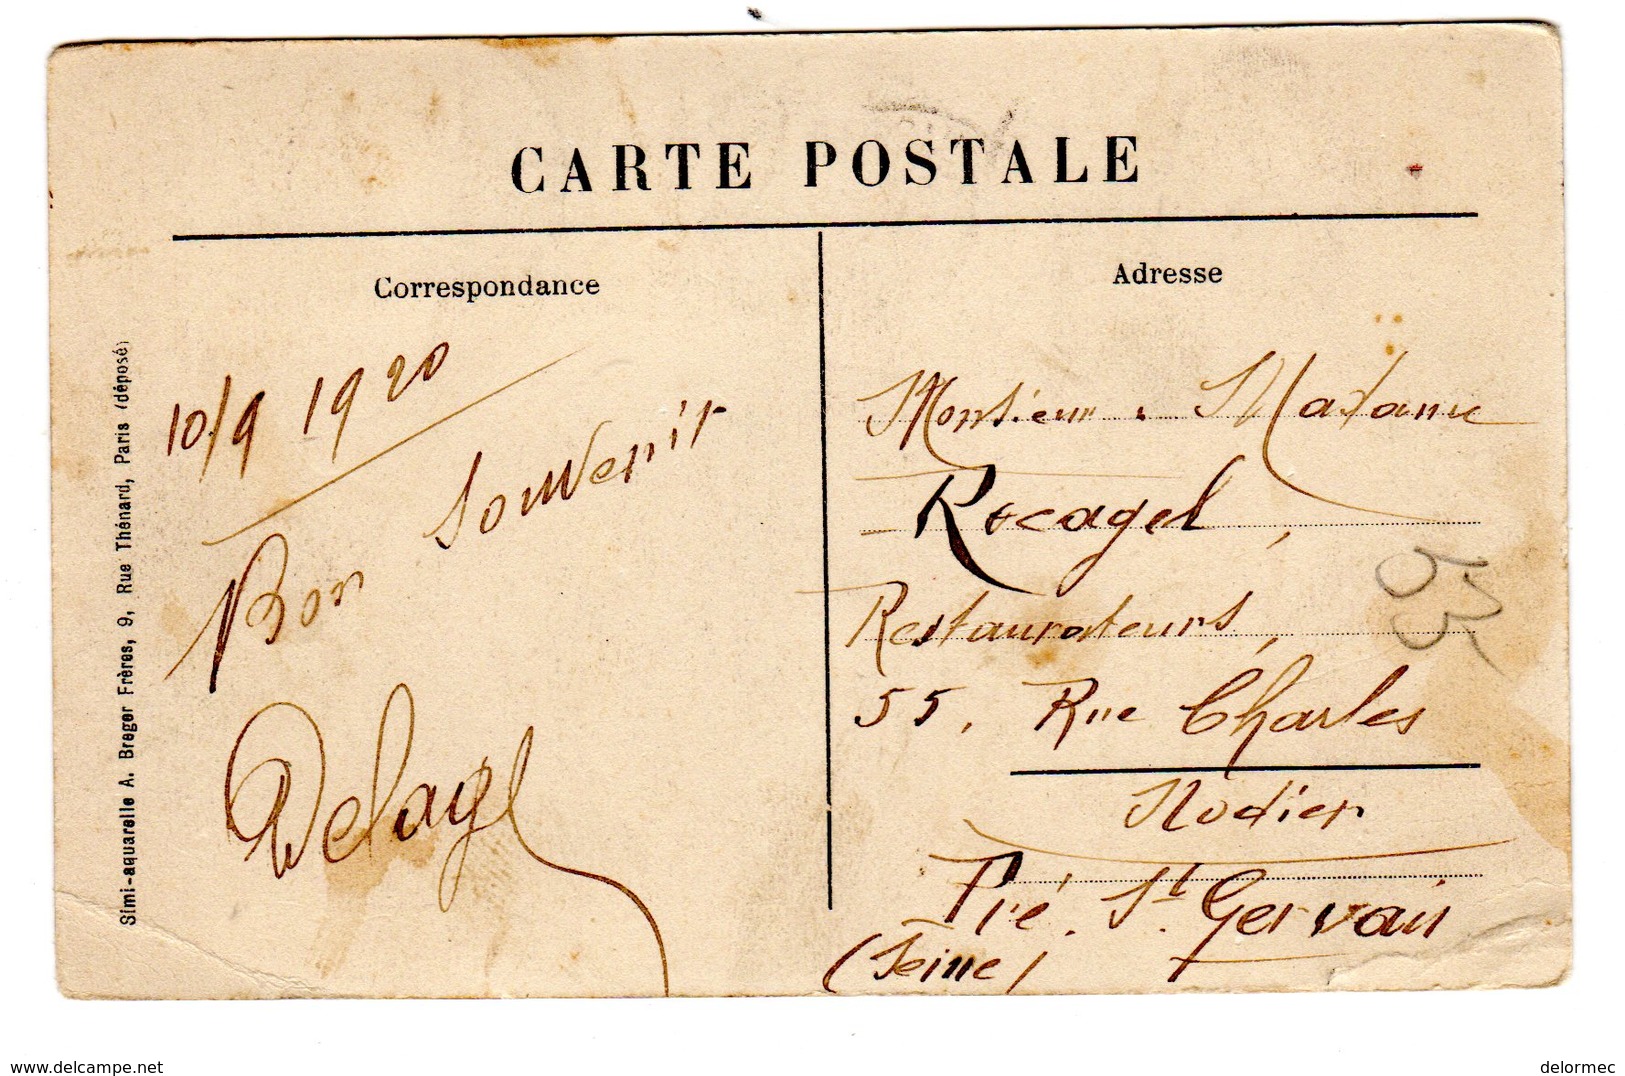 CARTE POSTALE
Correspondance
Adresse
10/9 1920
Bon souvenir
Delage
Monsieur. Madame
Rocagel,
Restaurateurs,
55, Rue Charles
Nodier
Pré. St. Gervais
(Seine)
53
Simi-aquarelle A. Breger Frères, 9, Rue Thénard, Paris (déposé)
https://www.delcampe.net
delormec